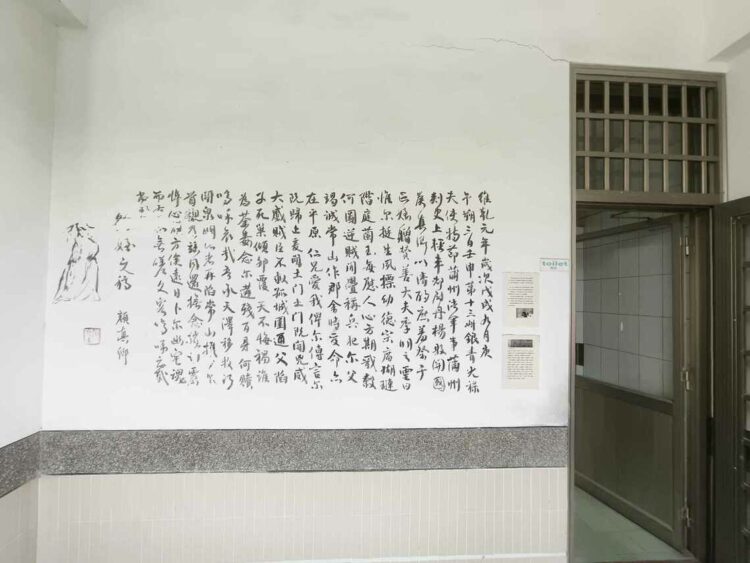 維乾元年歲次戊戌九月庚
午朔三日壬申第十三州銀青光祿
夫使持節蒲州諸軍事蒲州
刺史上輕車都尉丹楊縣開國
侯真卿以清酌庶羞祭于
亡姪贈贊善大夫季明之靈曰
惟尔挺生夙標幼德宗廟瑚璉
階庭蘭玉每慰人心方期戩穀
何圖逆賊間釁稱兵犯尔父
竭誠常山作郡余時受命亦
在平原仁兄愛我俾尔傳言尔
既歸止爰開土門土門既開凶威
大蹙賊臣不救孤城圍逼父陷
子死巢傾卵覆天不悔禍誰
為荼毒念尔遘殘百身何贖
嗚呼哀哉吾承天澤移牧河
關泉明比者再陷常山攜尔
首櫬及茲同還撫念摧切震
悼心顏方俟遠日卜尔幽宅魂
而有知無嗟久客嗚呼哀哉
尚饗
祭姪文稿 顏真卿
toilet